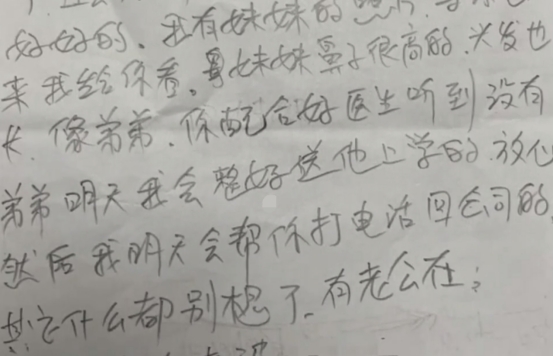 好好的、我有妹妹的照片、等
来我给你看,妹妹鼻子很高的.头发也
长.像弟弟.你配合好医生听到没有
弟弟明天我会整好送他上学的.放心
然后我明天会帮你打电话回公司的
其它什么都别想了.有老公在;